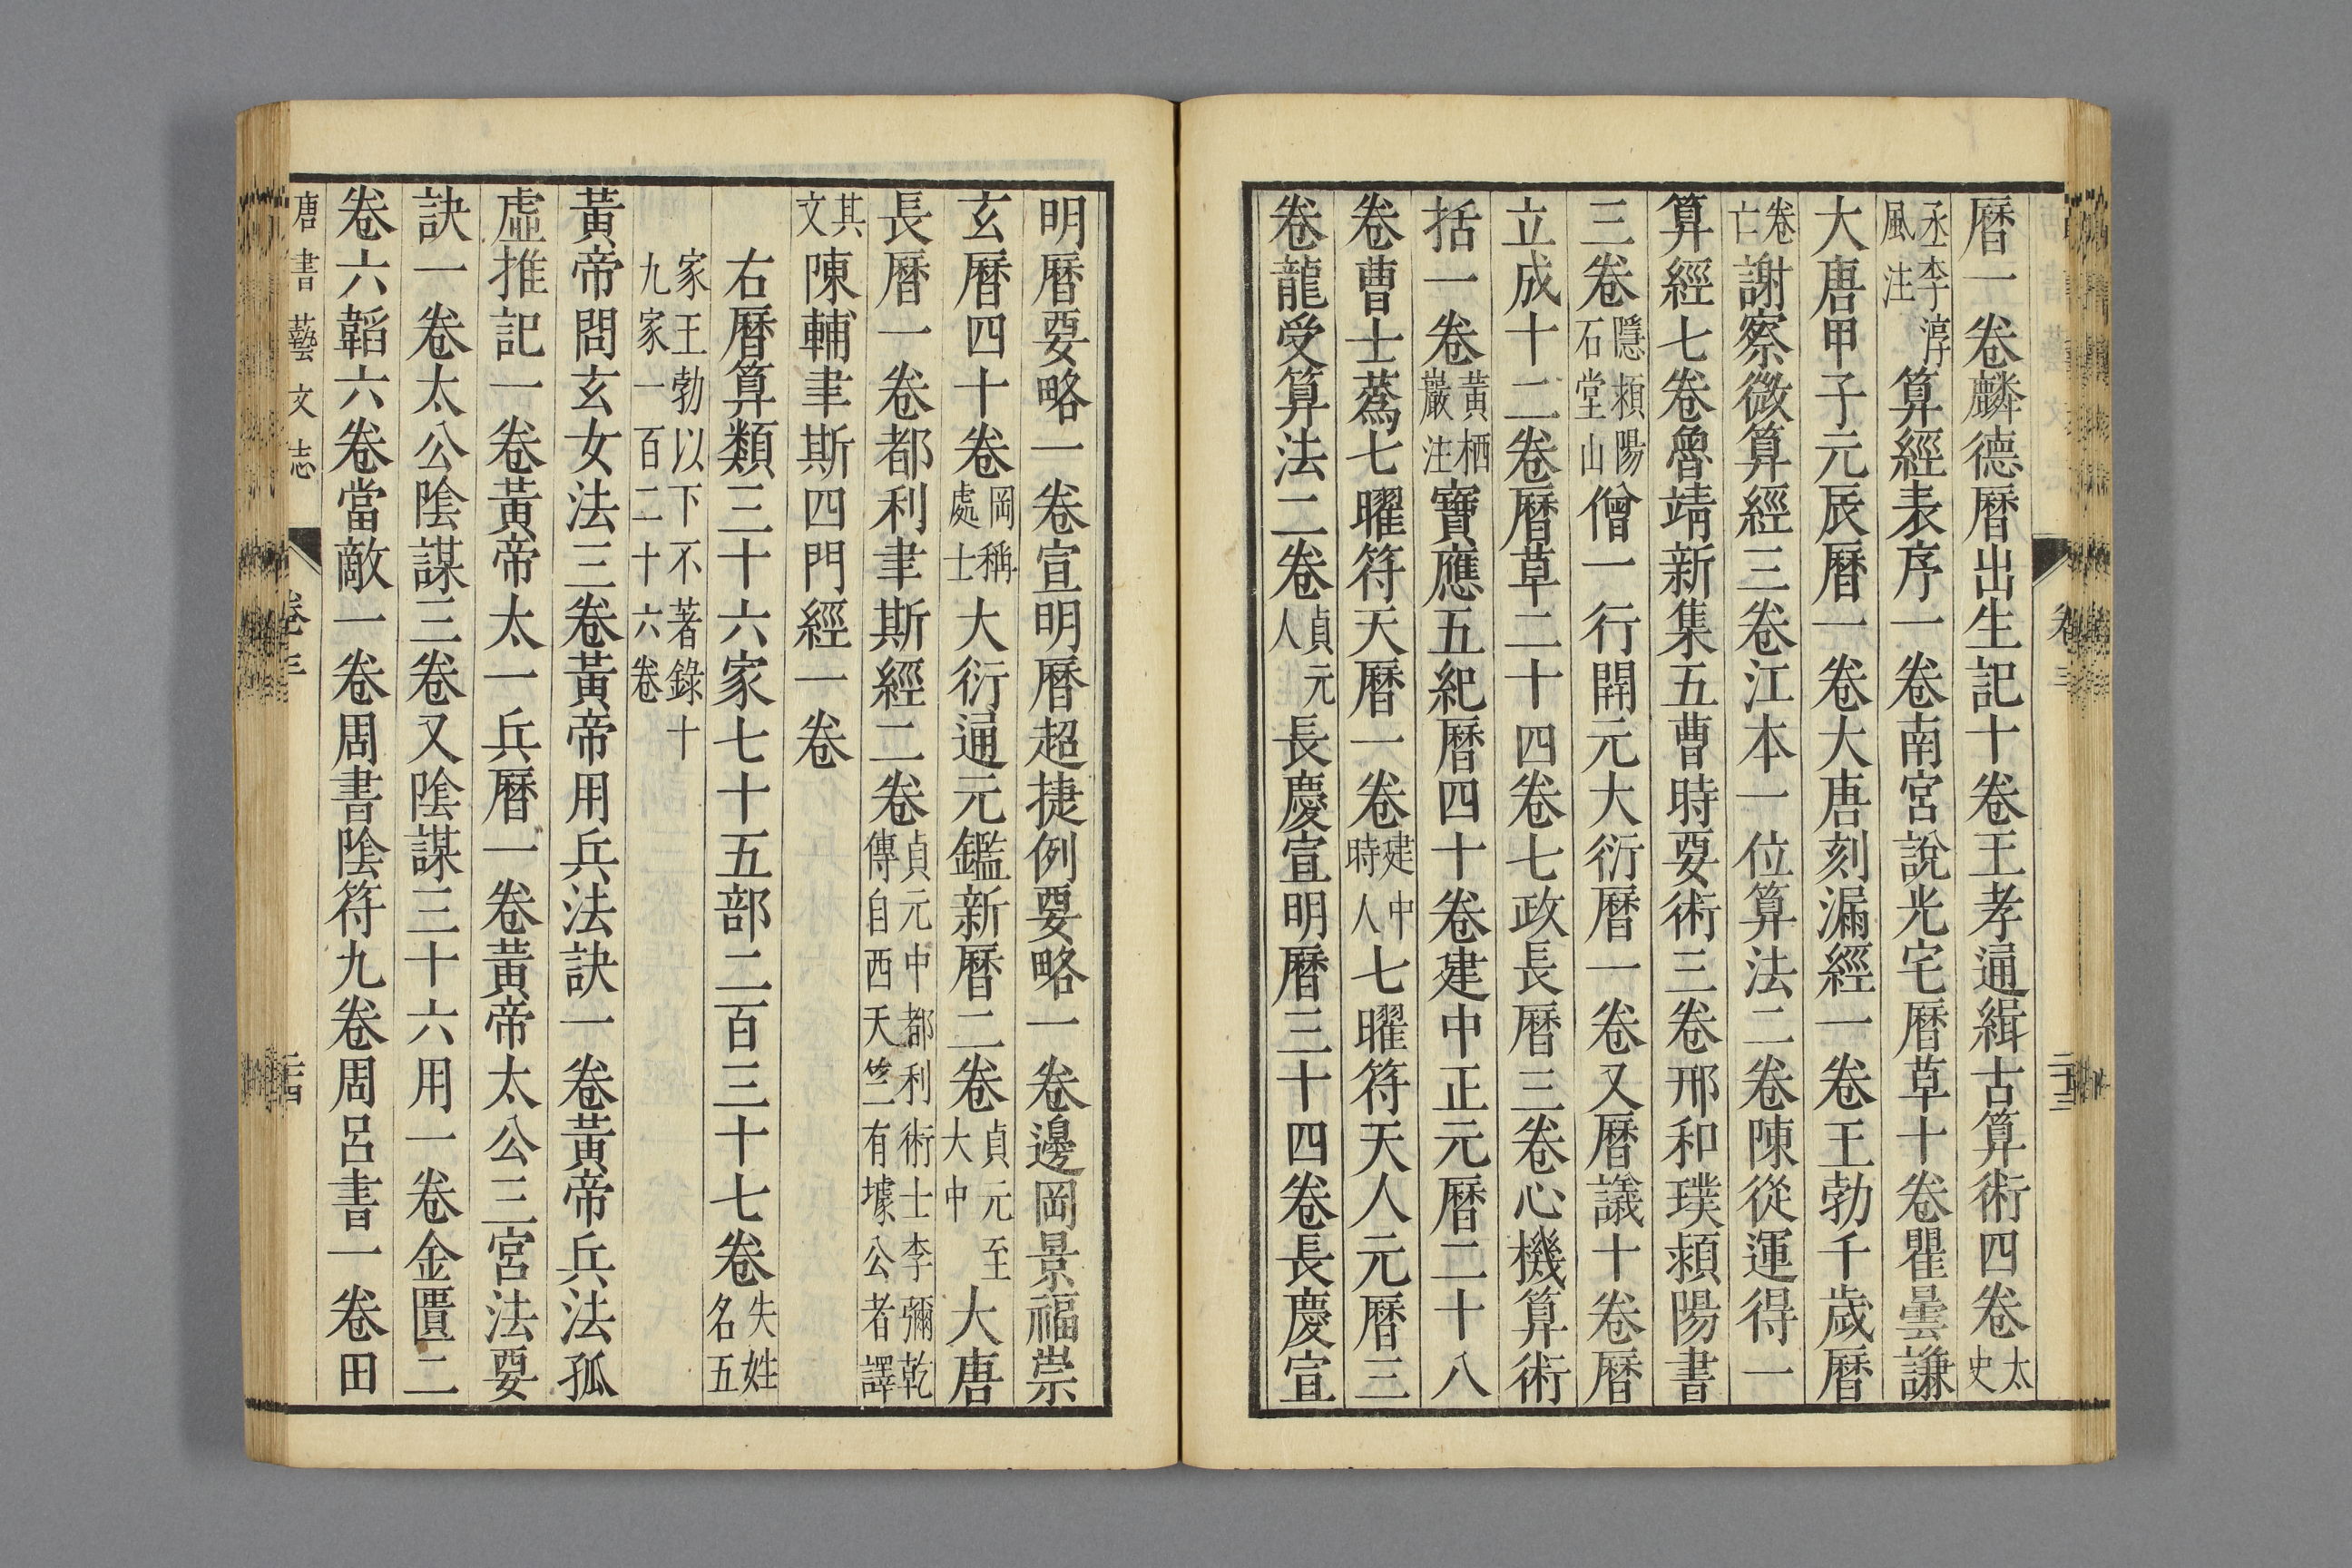 曆一卷麟德曆出生記十卷王孝通緝古算術四卷太史
丞李淳風注算經表序一卷南宮說光宅曆草十卷瞿曇謙
大唐甲子元辰曆一卷大唐刻漏經一卷王勃千歲曆
卷亡謝察微算經三卷江本一位算法二卷陳從運得一
算經七卷魯靖新集五曹時要術三卷邢和璞潁陽書
三卷隱潁陽石堂山僧一行開元大衍曆一卷又曆議十卷曆
立成十二卷曆草二十四卷七政長曆三卷心機算術
括一卷黃栖巖注寶應五紀曆四十卷建中正元曆二十八
卷曹士蒍七曜符天曆一卷建中時人七曜符天人元曆三
卷龍受算法二卷貞元人長慶宣明曆三十四卷長慶宣
卷三
二十三
明曆要略一卷宣明曆超捷例要略一卷邊岡景福崇
玄曆四十卷岡稱處士大衍通元鑑新曆二卷貞元至大中大唐
長曆一卷都利聿斯經二卷貞元中都利術士李彌乾傳自西天竺有璩公者譯
其文陳輔聿斯四門經一卷
右曆算類三十六家七十五部二百三十七卷失姓名五
家王勃以下不著錄十九家一百二十六卷
黃帝問玄女法三卷黃帝用兵法訣一卷黃帝兵法孤
虛推記一卷黃帝太一兵曆一卷黃帝太公三宮法要
訣一卷太公陰謀三卷又陰謀三十六用一卷金匱二
卷六韜六卷當敵一卷周書陰符九卷周呂書一卷田
唐書藝文志
卷三
二十四